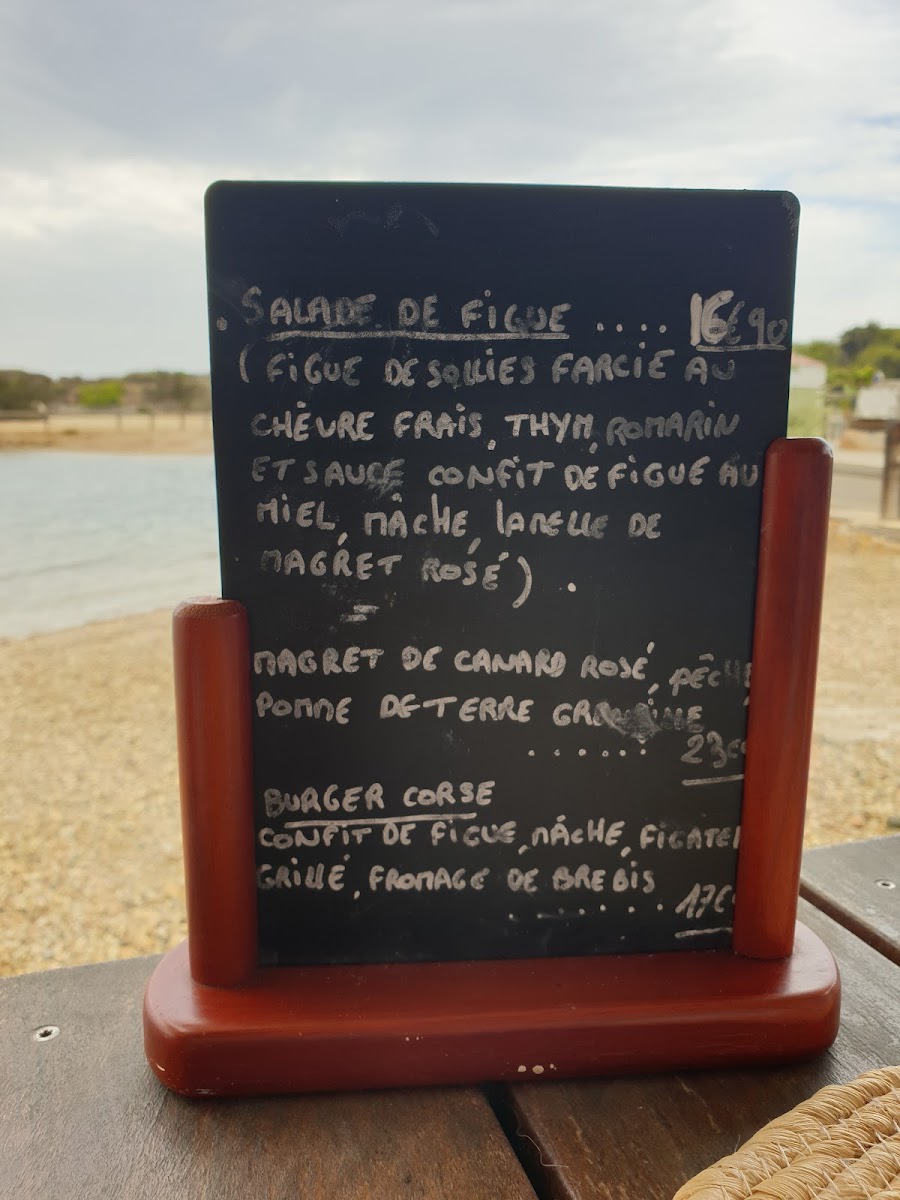 SALADE DE FIGUE .... 16€90
(FIGUE DE SOLLIES FARCIE AU
CHÈVRE FRAIS, THYM, ROMARIN
ET SAUCE CONFIT DE FIGUE AU
MIEL, MÂCHE, LAMELLE DE
MAGRET ROSÉ).
MAGRET DE CANARD ROSÉ, PÊCHE
POMME DE TERRE
...... 23€
BURGER CORSE
CONFIT DE FIGUE, MÂCHE, FIGATEL
GRILLÉ, FROMAGE DE BREBIS
....... 17€